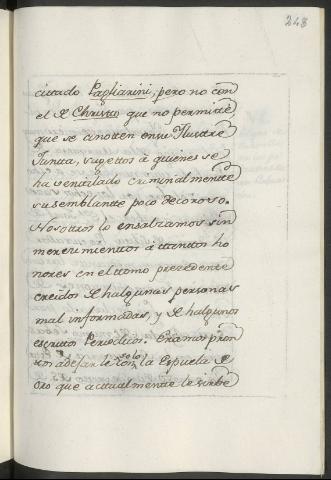 248
citado Pagliarini; pero no con
el de Christo que no permite,
que se anotten en su Ilustre
Junta, sugettos á quienes se
ha ventilado criminalmente
su semblantte poco decoroso.
Nosottros lo ensalzamos sin
merecimienttos á ttanttos ho
nores en el ttomo prezedente
creidos de halgunas personas
mal informadas, y de halgunos
escrittos Periodicos. Eramos pron
ttos a dejarle con solo la Espuela de
oro que actualmente le sirbe